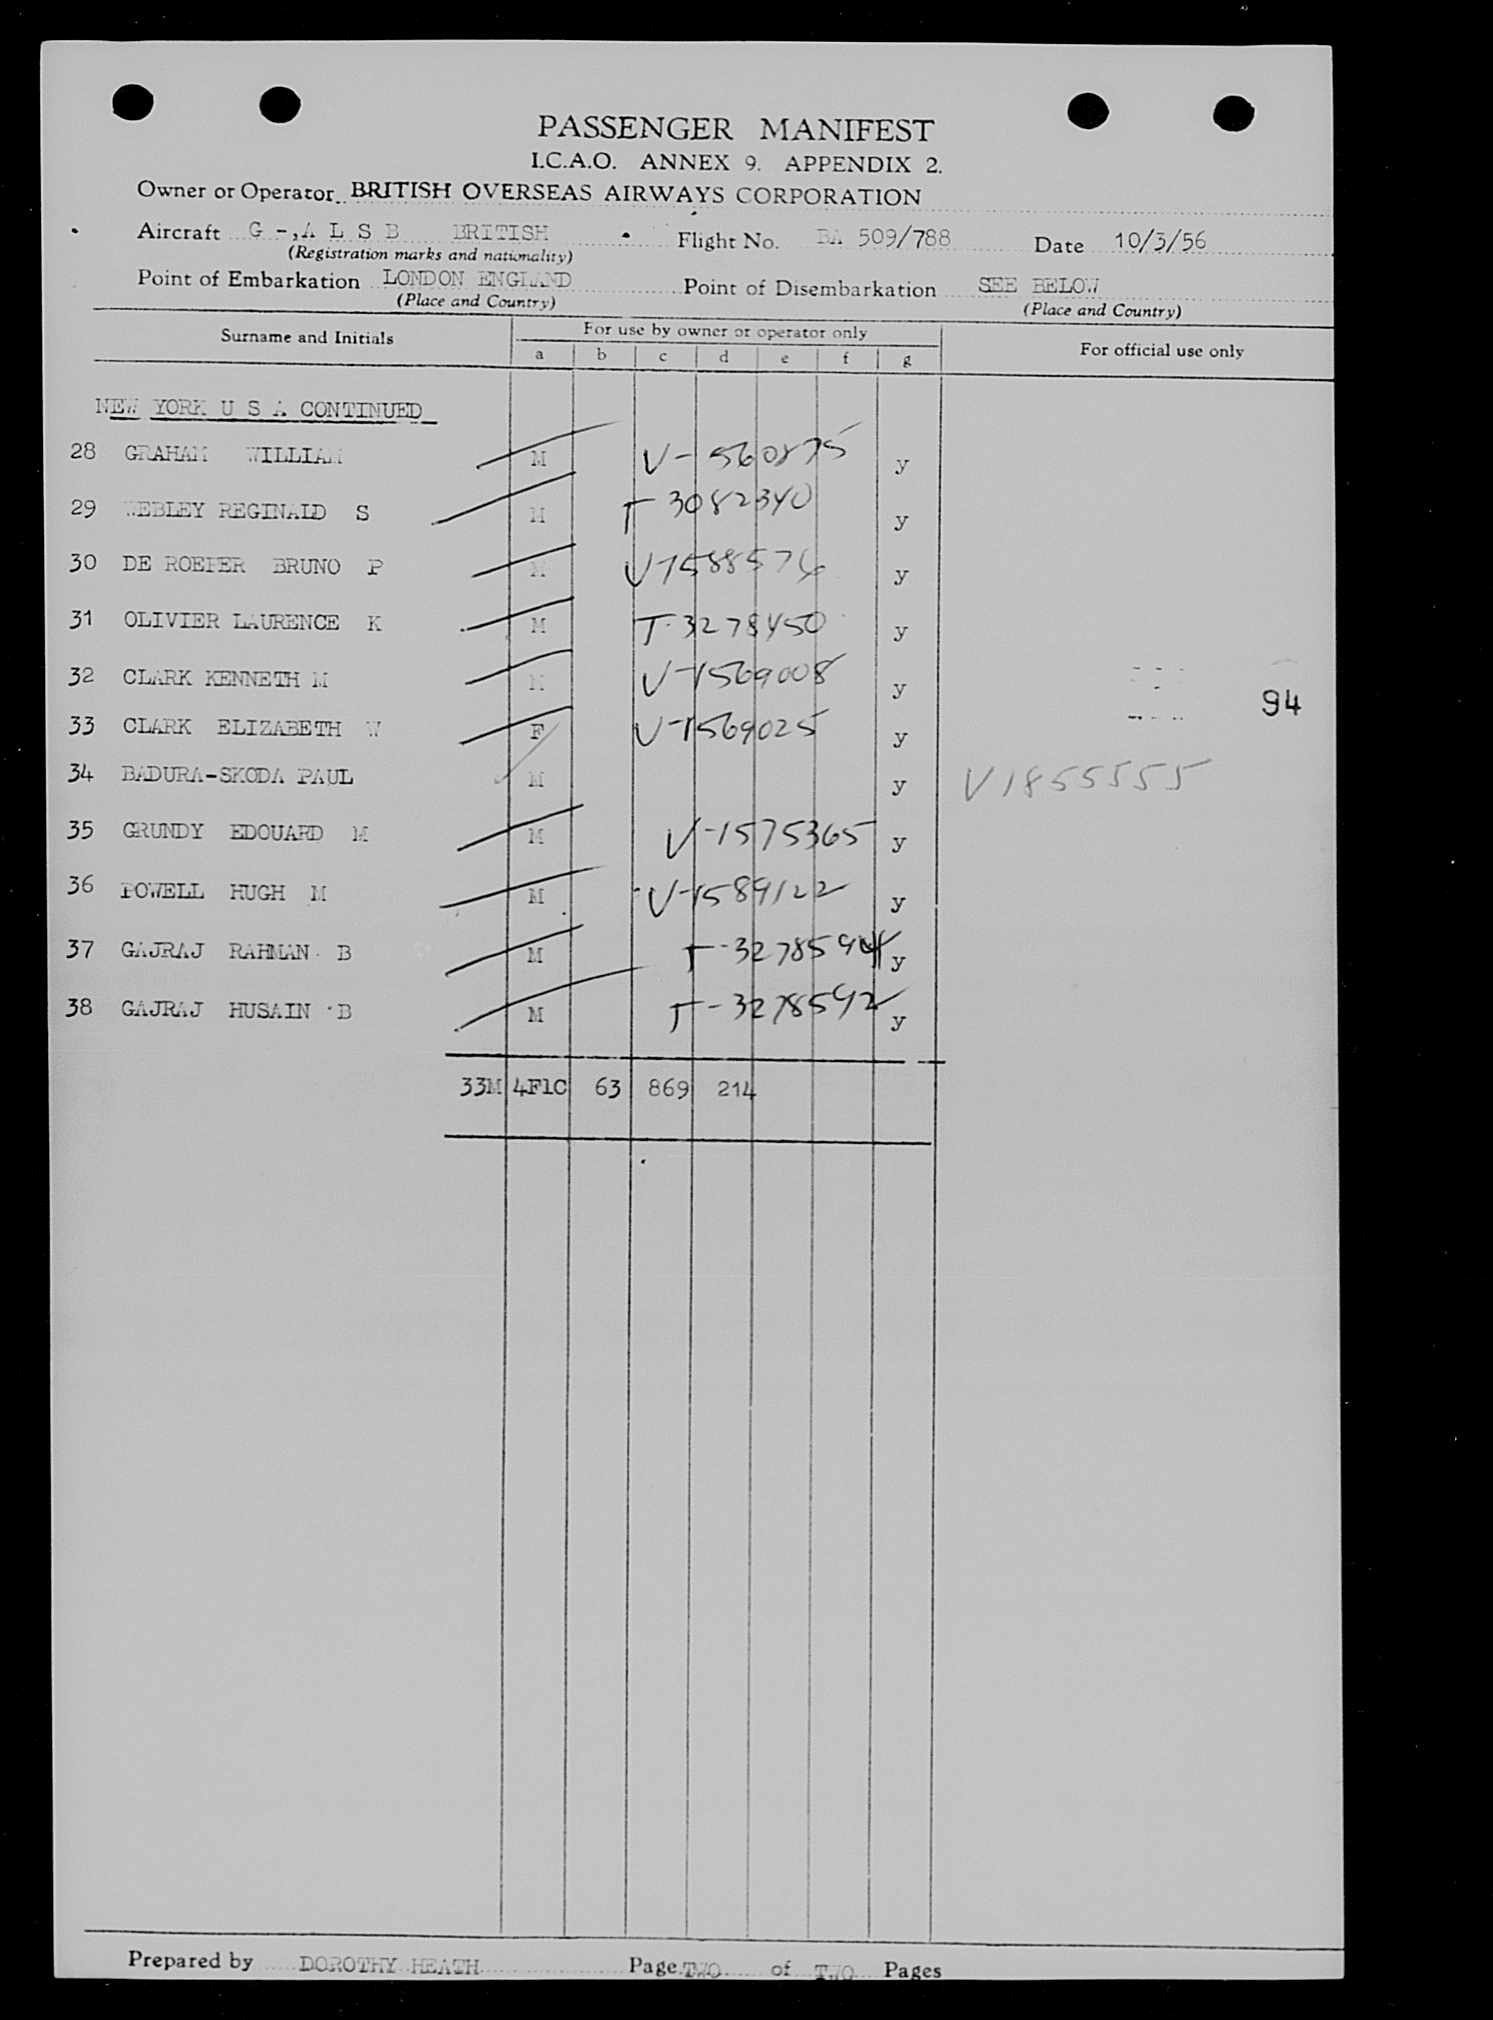 PASSENGER MANIFEST
I.C.A.O. ANNEX 9. APPENDIX 2.
Owner or Operator BRITISH OVERSEAS AIRWAYS CORPORATION
Aircraft G -,A L S B BRITISH Flight No. BA 509/788 Date 10/3/56
(Registration marks and nationality)
Point of Embarkation LONDON ENGLAND Point of Disembarkation SEE BELOW
(Place and Country) (Place and Country)
Surname and Initials For use by owner or operator only For official use only
a b c d e f g
NEW YORK U S A CONTINUED
28 GRAHAM WILLIAM M V-560875 y
29 WEBLEY REGINALD S M T 3082340 y
30 DE ROEPER BRUNO P M V1588576 y
31 OLIVIER LAURENCE K M T-3278450 y
32 CLARK KENNETH M M V-1569008 y
94
33 CLARK ELIZABETH W F V-1569025 y
34 BADURA-SKODA PAUL M y V1855555
35 GRUNDY EDOUARD M M V-1575365 y
36 POWELL HUGH M M V-1589122 y
37 GAJRAJ RAHMAN B M T-3278594 y
38 GAJRAJ HUSAIN B M T-3278592 y
33M 4F1C 63 869 214
Prepared by DOROTHY HEATH Page TWO of TWO Pages